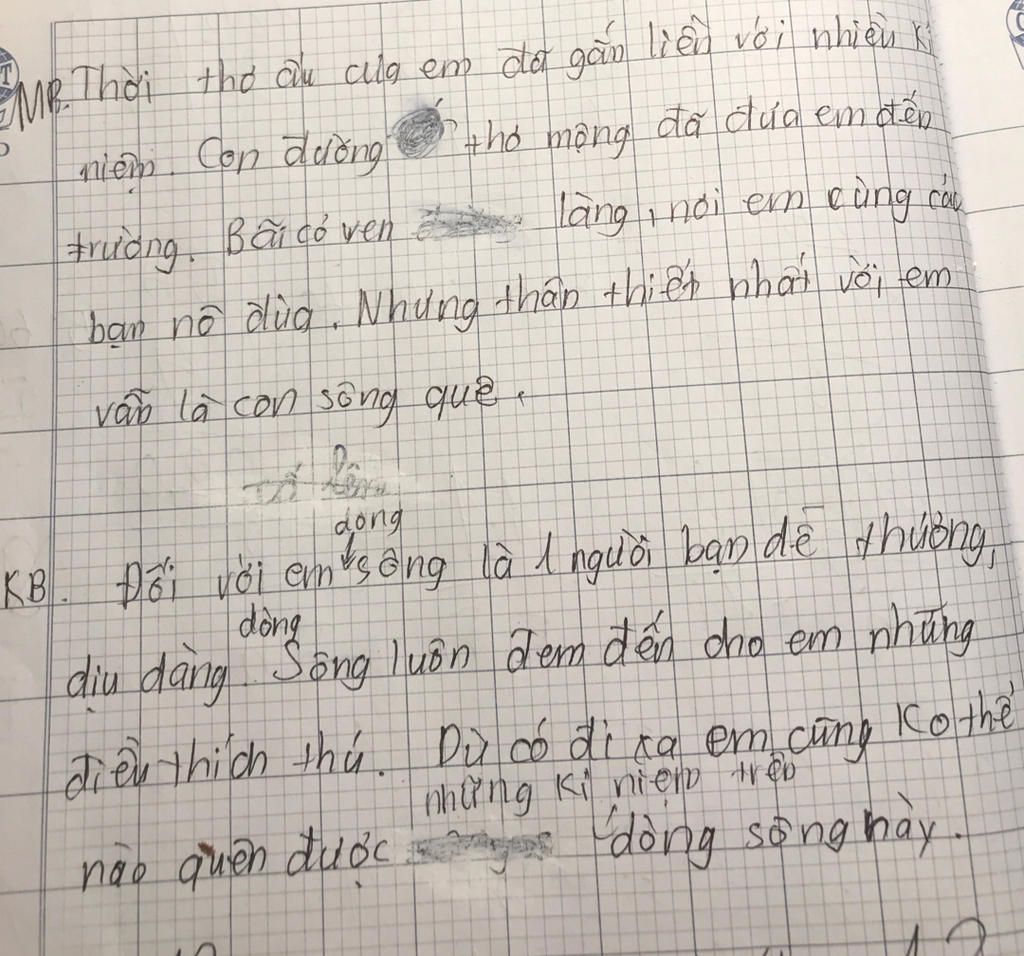 MB. Thời thơ ấu của em đã gắn liền với nhiều kỉ
niệm. Con đường thơ mộng đã đưa em đến
trường. Bãi cỏ ven làng, nơi em cùng các
bạn nô đùa. Nhưng thân thiết nhất với em
vẫn là con sông quê.
dòng
KB. Đối với em sông là 1 người bạn dễ thương,
dòng
dịu dàng. Sông luôn đem đến cho em những
điều thích thú. Dù có đi xa em cũng ko thể
những kỉ niệm trên
nào quên được dòng sông này.